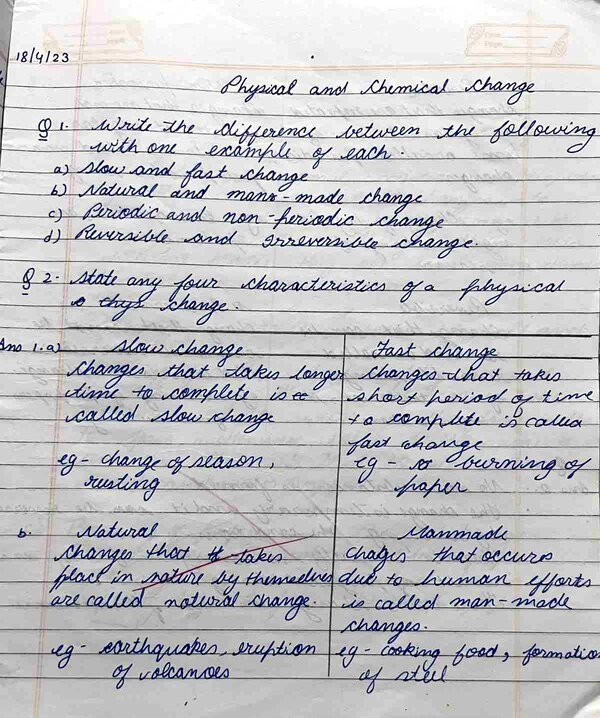 18/4/23
Physical and Chemical Change
Q 1. Write the difference between the following
with one example of each.
a) Slow and fast change
b) Natural and man-made change
c) Periodic and non-periodic change
d) Reversible and Irreversible change.
Q 2. State any four characteristics of a physical
change.
Ans 1. a) Slow change
Changes that takes longer
time to complete is
called slow change
eg - change of season,
rusting
Fast change
changes that takes
short period of time
to complete is called
fast change
eg - burning of
paper
b. Natural
changes that takes
place in nature by themselves
are called natural change.
eg - earthquakes, eruption
of volcanoes
Manmade
chages that occurs
due to human efforts
is called man-made
changes.
eg - cooking food, formation
of steel